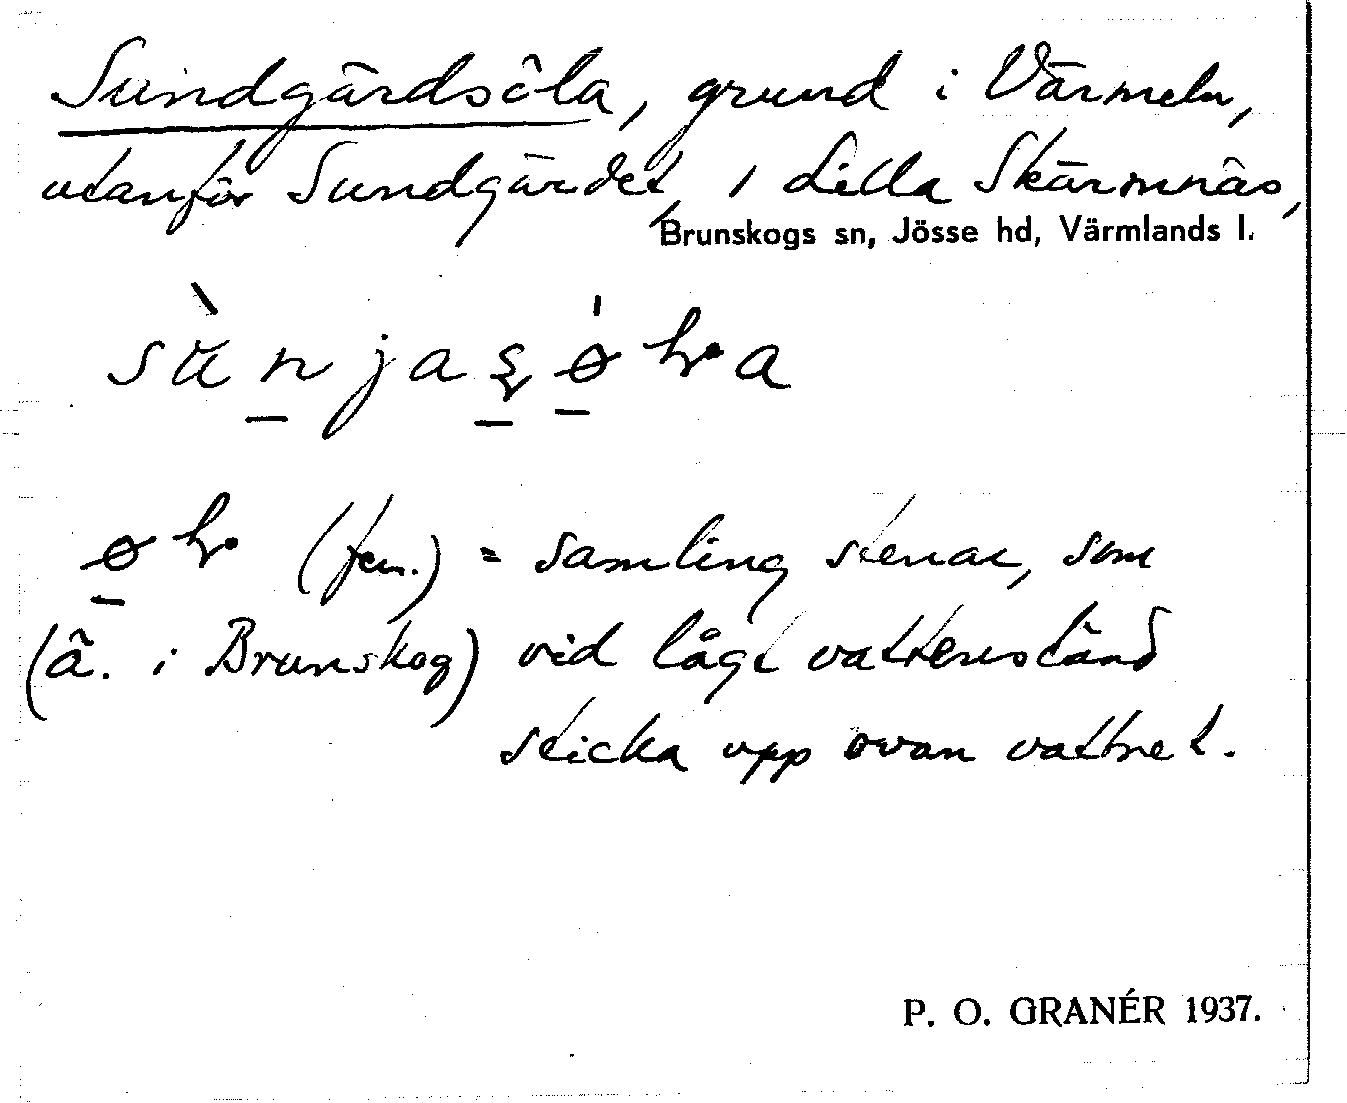 Sundgärdsöla, grund i Värmeln,
utanför Sundgärdet, 1 Lilla Skärmnäs,
Brunskogs sn, Jösse hd, Värmlands l.
(fem.) = samling stenar, som
(ä. i Brunskog) vid lågt vattenstånd
sticka upp ovan vattnet.
P. O. GRANÉR 1937.